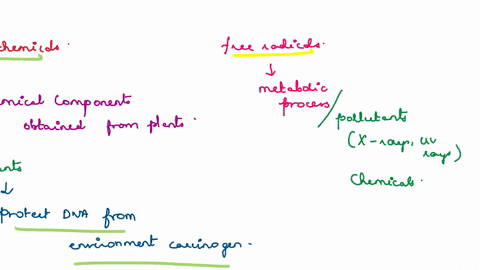 chemicals.
emical Components
obtained from plants.
nts
↓
protect DNA from
environment carcinogen.
free radicals.
↓
metabolic
process /
pollutants
(X-rays, uv
rays)
Chemicals.